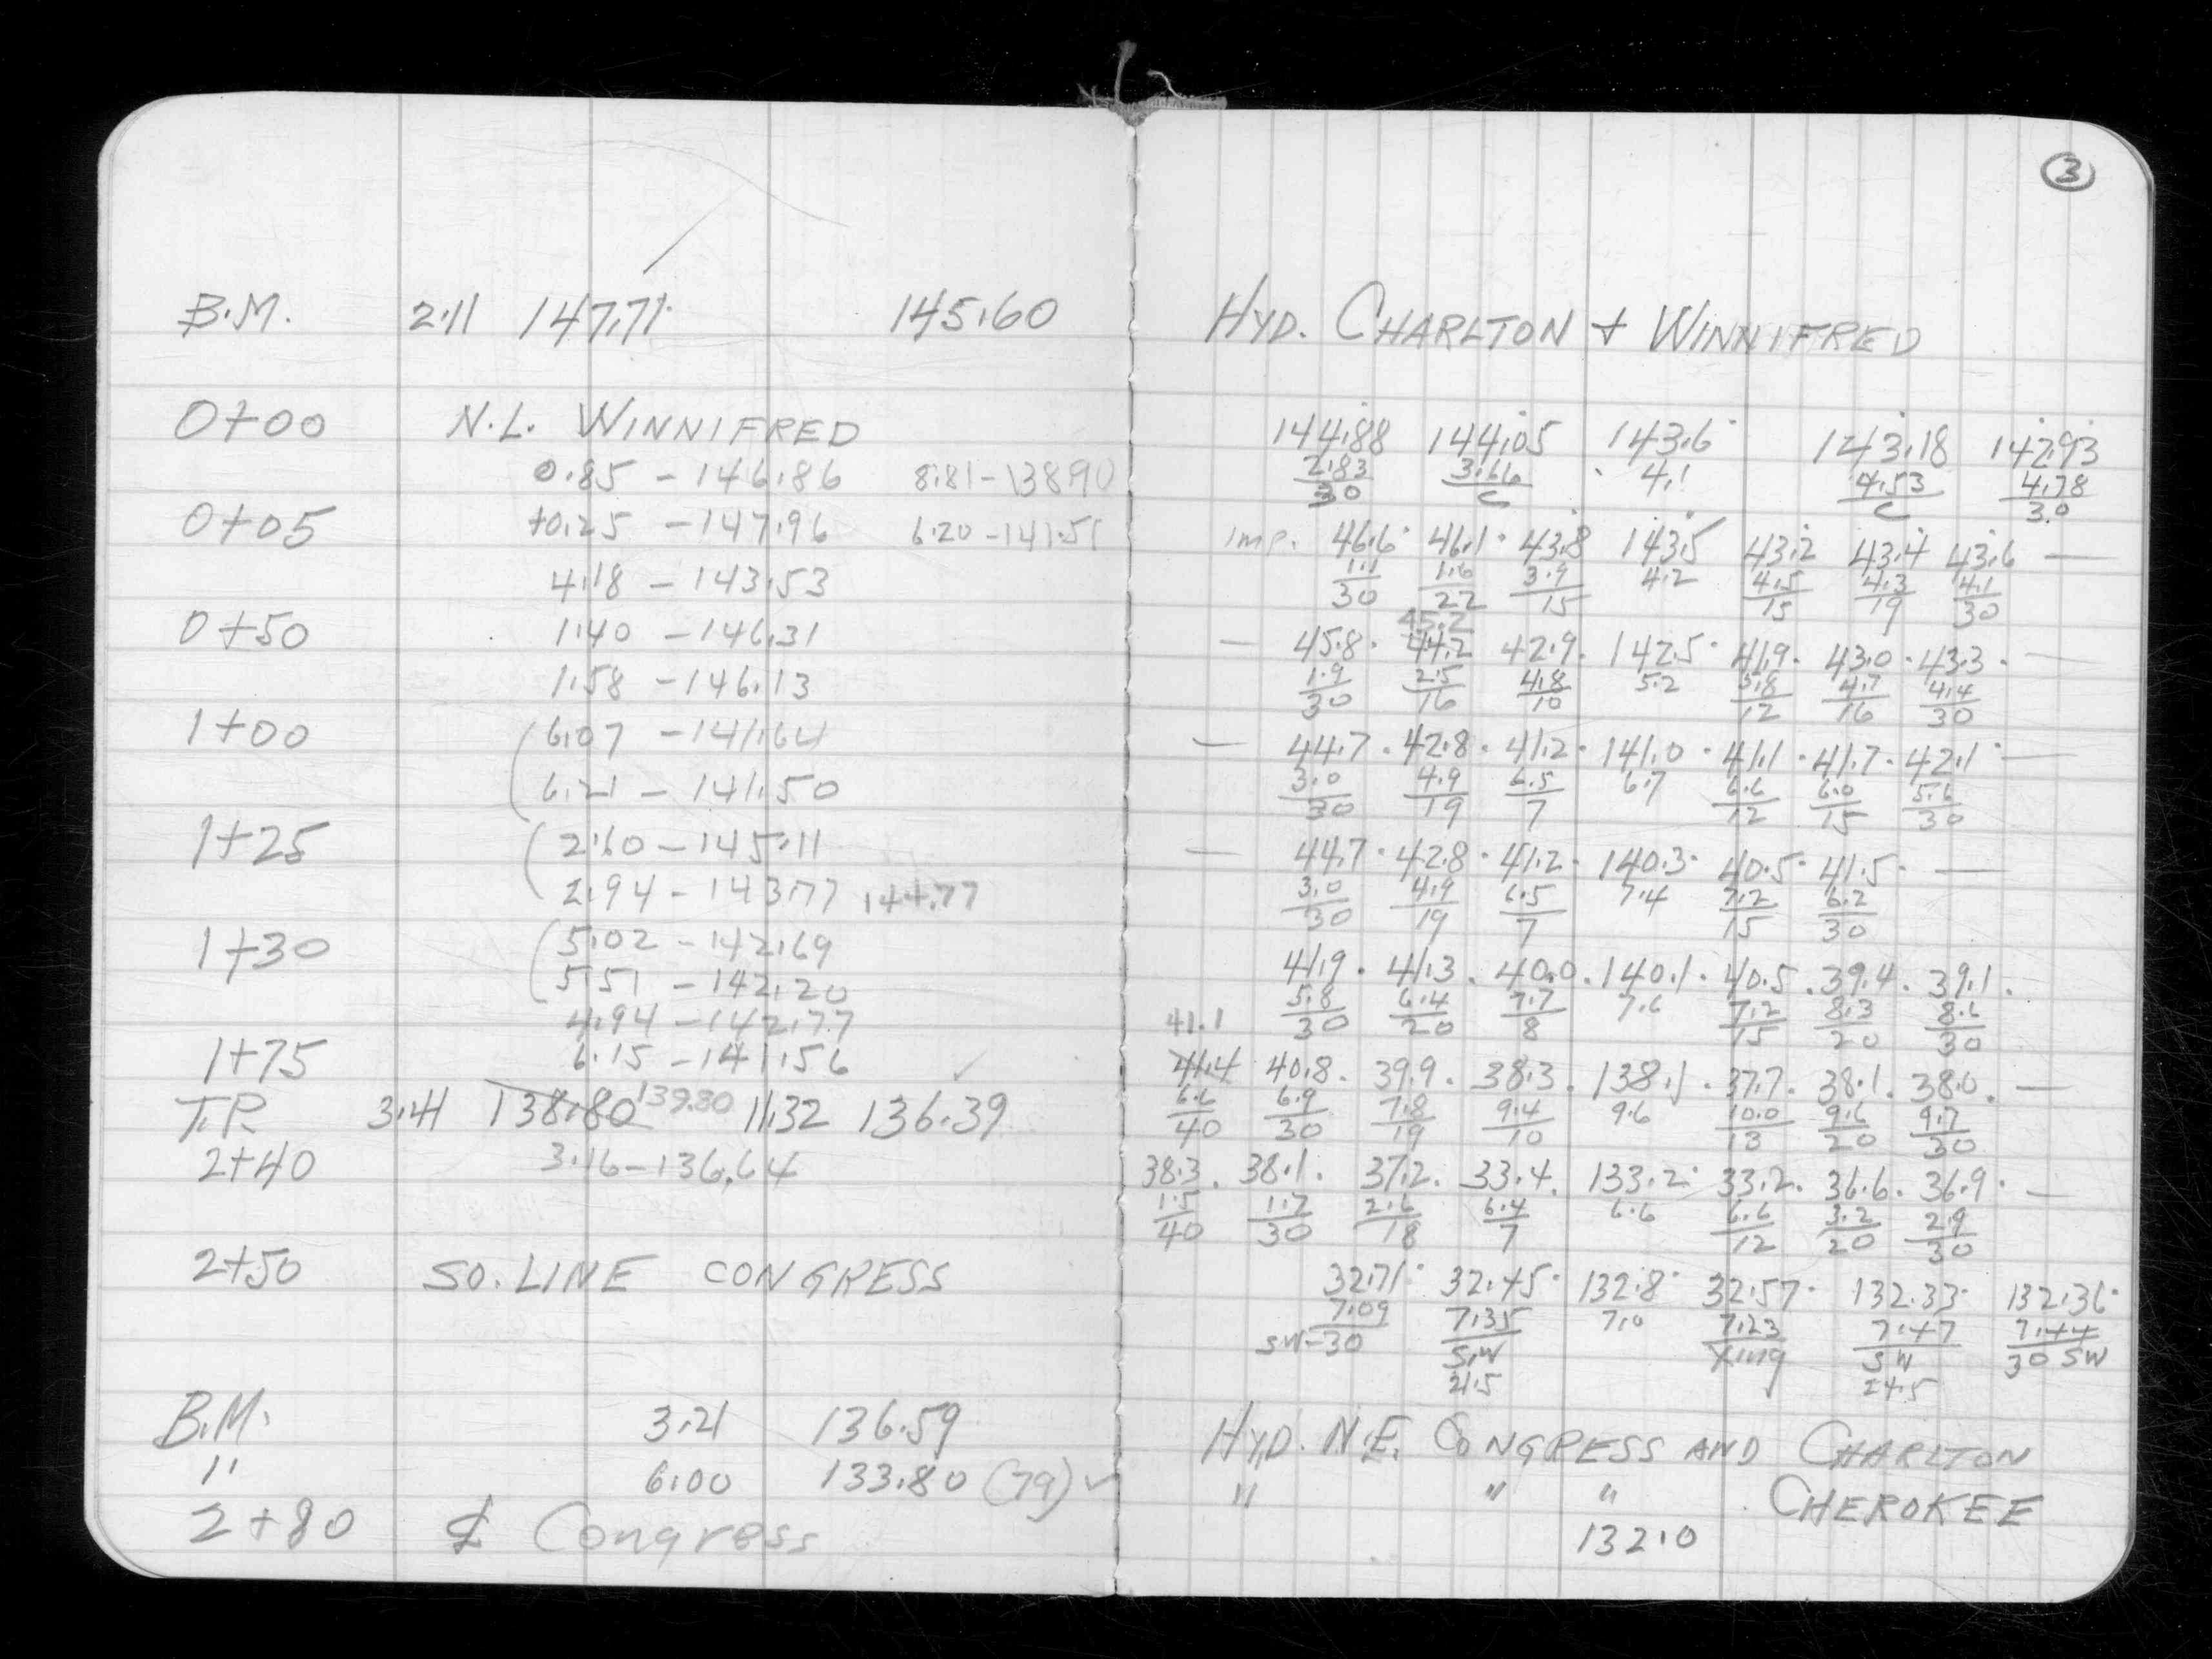 B.M. 2.11 147.71 145.60
0+00 N.L. WINNIFRED
0.85 - 146.86 8.81 - 138.90
0+05 +0.25 - 147.96 6.20 - 141.51
4.18 - 143.53
0+50 1.40 - 146.31
1.58 - 146.13
1+00 (6.07 - 141.64
6.21 - 141.50
1+25 (2.60 - 145.11
2.94 - 143.77 144.77
1+30 (5.02 - 142.69
5.51 - 142.20
4.94 - 142.77
1+75 6.15 - 141.56
T.P. 3.41 138.80 139.80 11.32 136.39
2+40 3.16 - 136.64
2+50 SO. LINE CONGRESS
B.M. 3.21 136.59
" 6.00 133.80 (79) ✓
2+80 ⅊ Congress
3
HYD. CHARLTON + WINNIFRED
144.88 144.05 143.6 143.18 142.93
2.83 3.66 4.1 4.53 4.78
30 C C 30
Imp. 46.6 46.1 43.8 143.5 43.2 43.4 43.6 —
1.1 1.6 3.9 4.2 4.5 4.3 4.1
30 22 15 15 19 30
45.2
— 45.8 44.2 42.9 142.5 41.9 43.0 43.3 —
1.9 2.5 4.8 5.2 5.8 4.7 4.4
30 16 10 12 16 30
— 44.7 42.8 41.2 141.0 41.1 41.7 42.1 —
3.0 4.9 6.5 6.7 6.6 6.0 5.6
30 19 7 12 15 30
— 44.7 42.8 41.2 140.3 40.5 41.5 —
3.0 4.9 6.5 7.4 7.2 6.2
30 19 7 15 30
41.9 41.3 40.0 140.1 40.5 39.4 39.1
5.8 6.4 7.7 7.6 7.2 8.3 8.6
41.1 30 20 8 15 20 30
41.4 40.8 39.9 38.3 138.1 37.7 38.1 38.0 —
6.6 6.9 7.8 9.4 9.6 10.0 9.6 9.7
40 30 19 10 13 20 30
38.3 38.1 37.2 33.4 133.2 33.2 36.6 36.9 —
1.5 1.7 2.6 6.4 6.6 6.6 3.2 2.9
40 30 18 7 12 20 30
32.71 32.45 132.8 32.57 132.33 132.36
7.09 7.35 7.0 7.23 7.47 7.44
SW-30 S.W Xing SW 30 SW
21.5 24.5
HYD. N.E. CONGRESS AND CHARLTON
" " " CHEROKEE
132.0